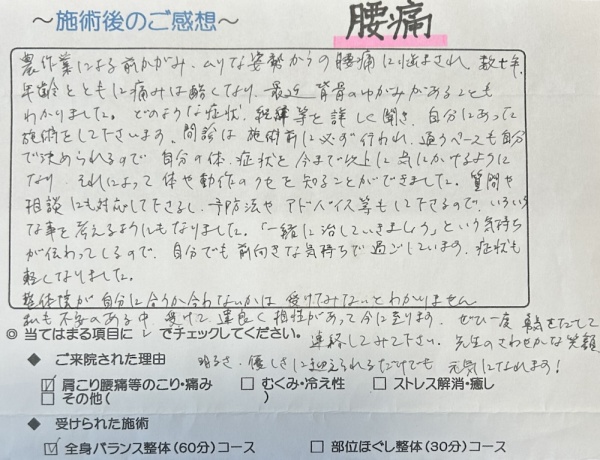 ～施術後のご感想～
腰痛
農作業による前かがみ、ムリな姿勢からの腰痛に悩まされ、数十年、
年齢とともに痛みは酷くなり、最近背骨のゆがみがあることも
わかりました。どのような症状、経緯等を詳しく聞き、自分にあった
施術をして下さいます。問診は施術前に必ず行われ、通うペースも自分
で決められるので自分の体、症状と今まで以上に気にかけるように
なり、それによって体や動作のクセを知ることができました。質問や
相談にも対応して下さるし、予防法やアドバイス等もして下さるので、いろいろ
な事を考えるようにもなりました。「一緒に治していきましょう」という気持ち
が伝わってくるので、自分でも前向きな気持ちで過ごしています。症状も
軽くなりました。
整体院が自分に合うか合わないかは受けてみないとわかりません
私も不安のある中受けて運良く相性があって今に至ります。ぜひ一度勇気をだして
連絡してみて下さい。先生のさわやかな笑顔
明るさ、優しさに迎えられるだけでも元気になれます！
◎ 当てはまる項目に✓でチェックしてください。
◆ ご来院された理由
☑ 肩こり腰痛等のこり・痛み □ むくみ・冷え性 □ ストレス解消・癒し
□ その他( )
◆ 受けられた施術
☑ 全身バランス整体(60分)コース □ 部位ほぐし整体(30分)コース